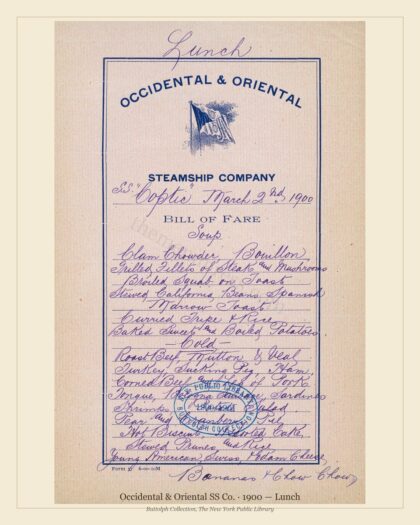 Lunch
OCCIDENTAL & ORIENTAL
STEAMSHIP COMPANY
SS. "Coptic" March 2nd, 1900
BILL OF FARE
Soup
Clam Chowder, Bouillon
Grilled Fillets of Steak and Mushrooms
Broiled Squab on Toast
Stewed California Beans Spanish
Marrow Toast
Curried Tripe & Rice
Baked Sweet and Boiled Potatoes
Cold
Roast Beef, Mutton & Veal
Turkey, Sucking Pig, Ham,
Corned Beef Leg of Pork
Tongue, Sardines
Shrimp Salad
Pear and Cranberry Pie
Hot Biscuits, Cake,
Stewed Prunes and Rice
Young American, Swiss, Edam Cheese
Form 37 6-00-20M
Bananas & Chow Chow
PUBLIC LIBRARY
BUTTOLPH COLLECTION
Occidental & Oriental SS Co. · 1900 — Lunch
Buttolph Collection, The New York Public Library